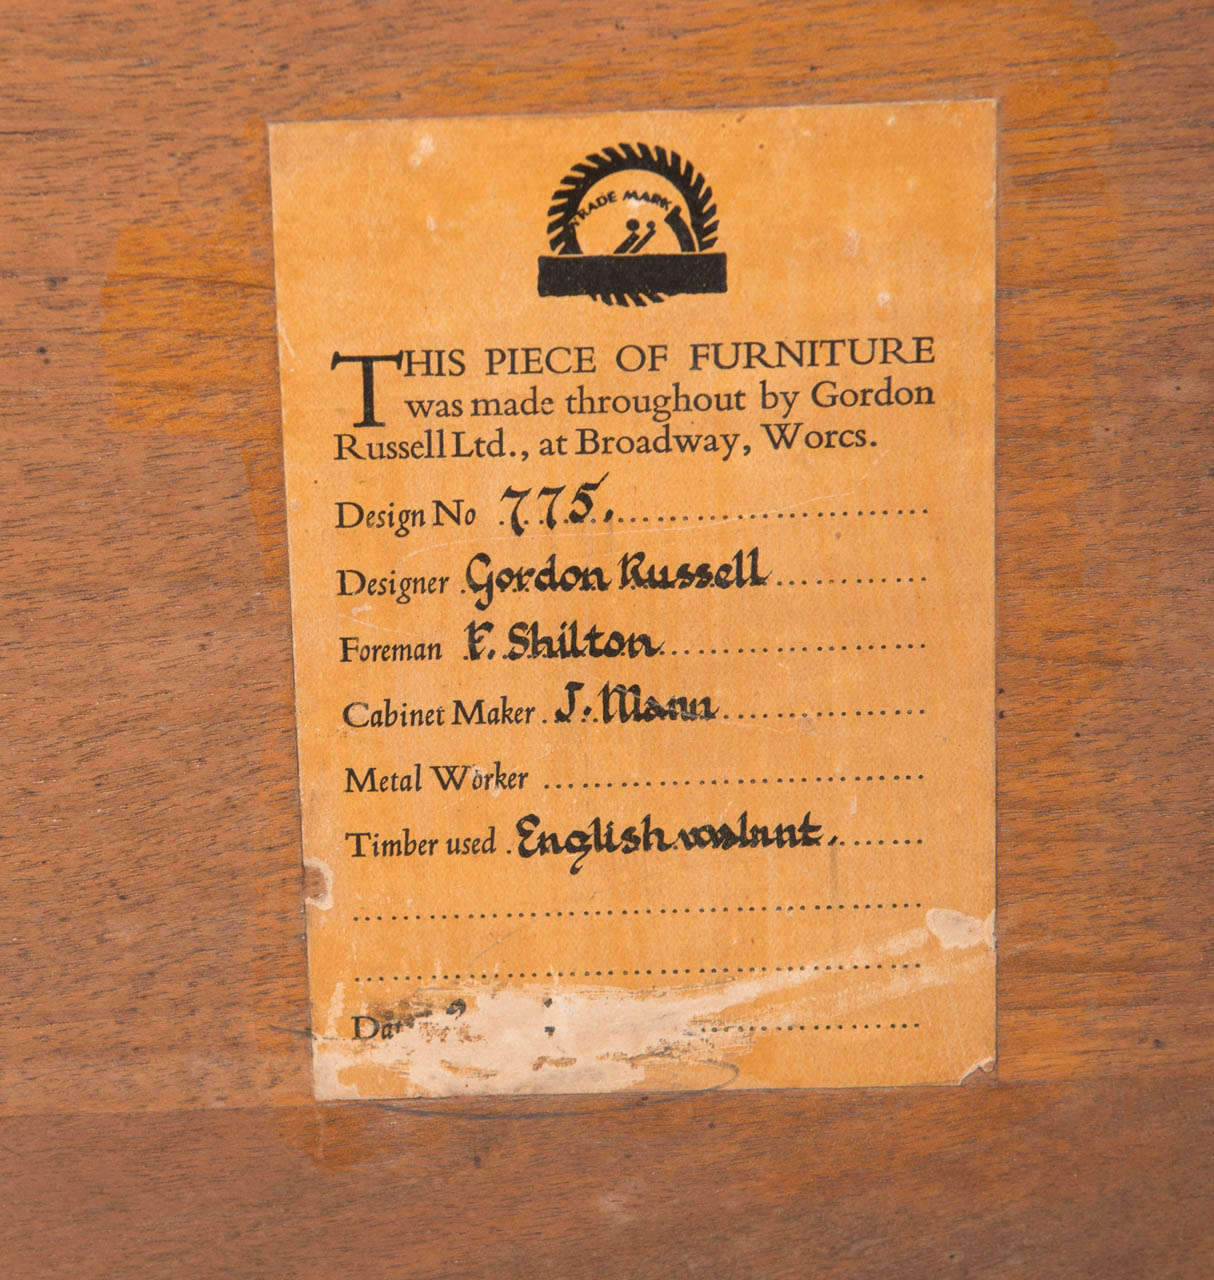 TRADE MARK
THIS PIECE OF FURNITURE
was made throughout by Gordon
Russell Ltd., at Broadway, Worcs.
Design No 775.
Designer Gordon Russell
Foreman F. Shilton
Cabinet Maker J. Mann
Metal Worker
Timber used English walnut.